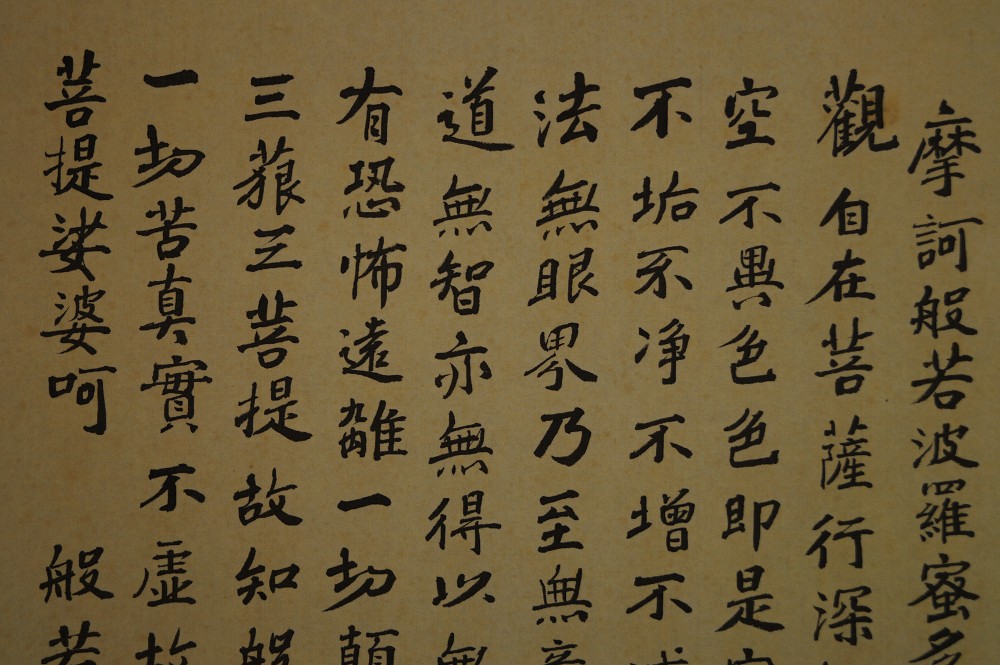 摩訶般若波羅蜜多
觀自在菩薩行深
空不異色色即是空
不垢不净不增不減
法無眼界乃至無意
道無智亦無得以無
有恐怖遠離一切顛
三藐三菩提故知般
一切苦真實不虛故
菩提娑婆呵 般若